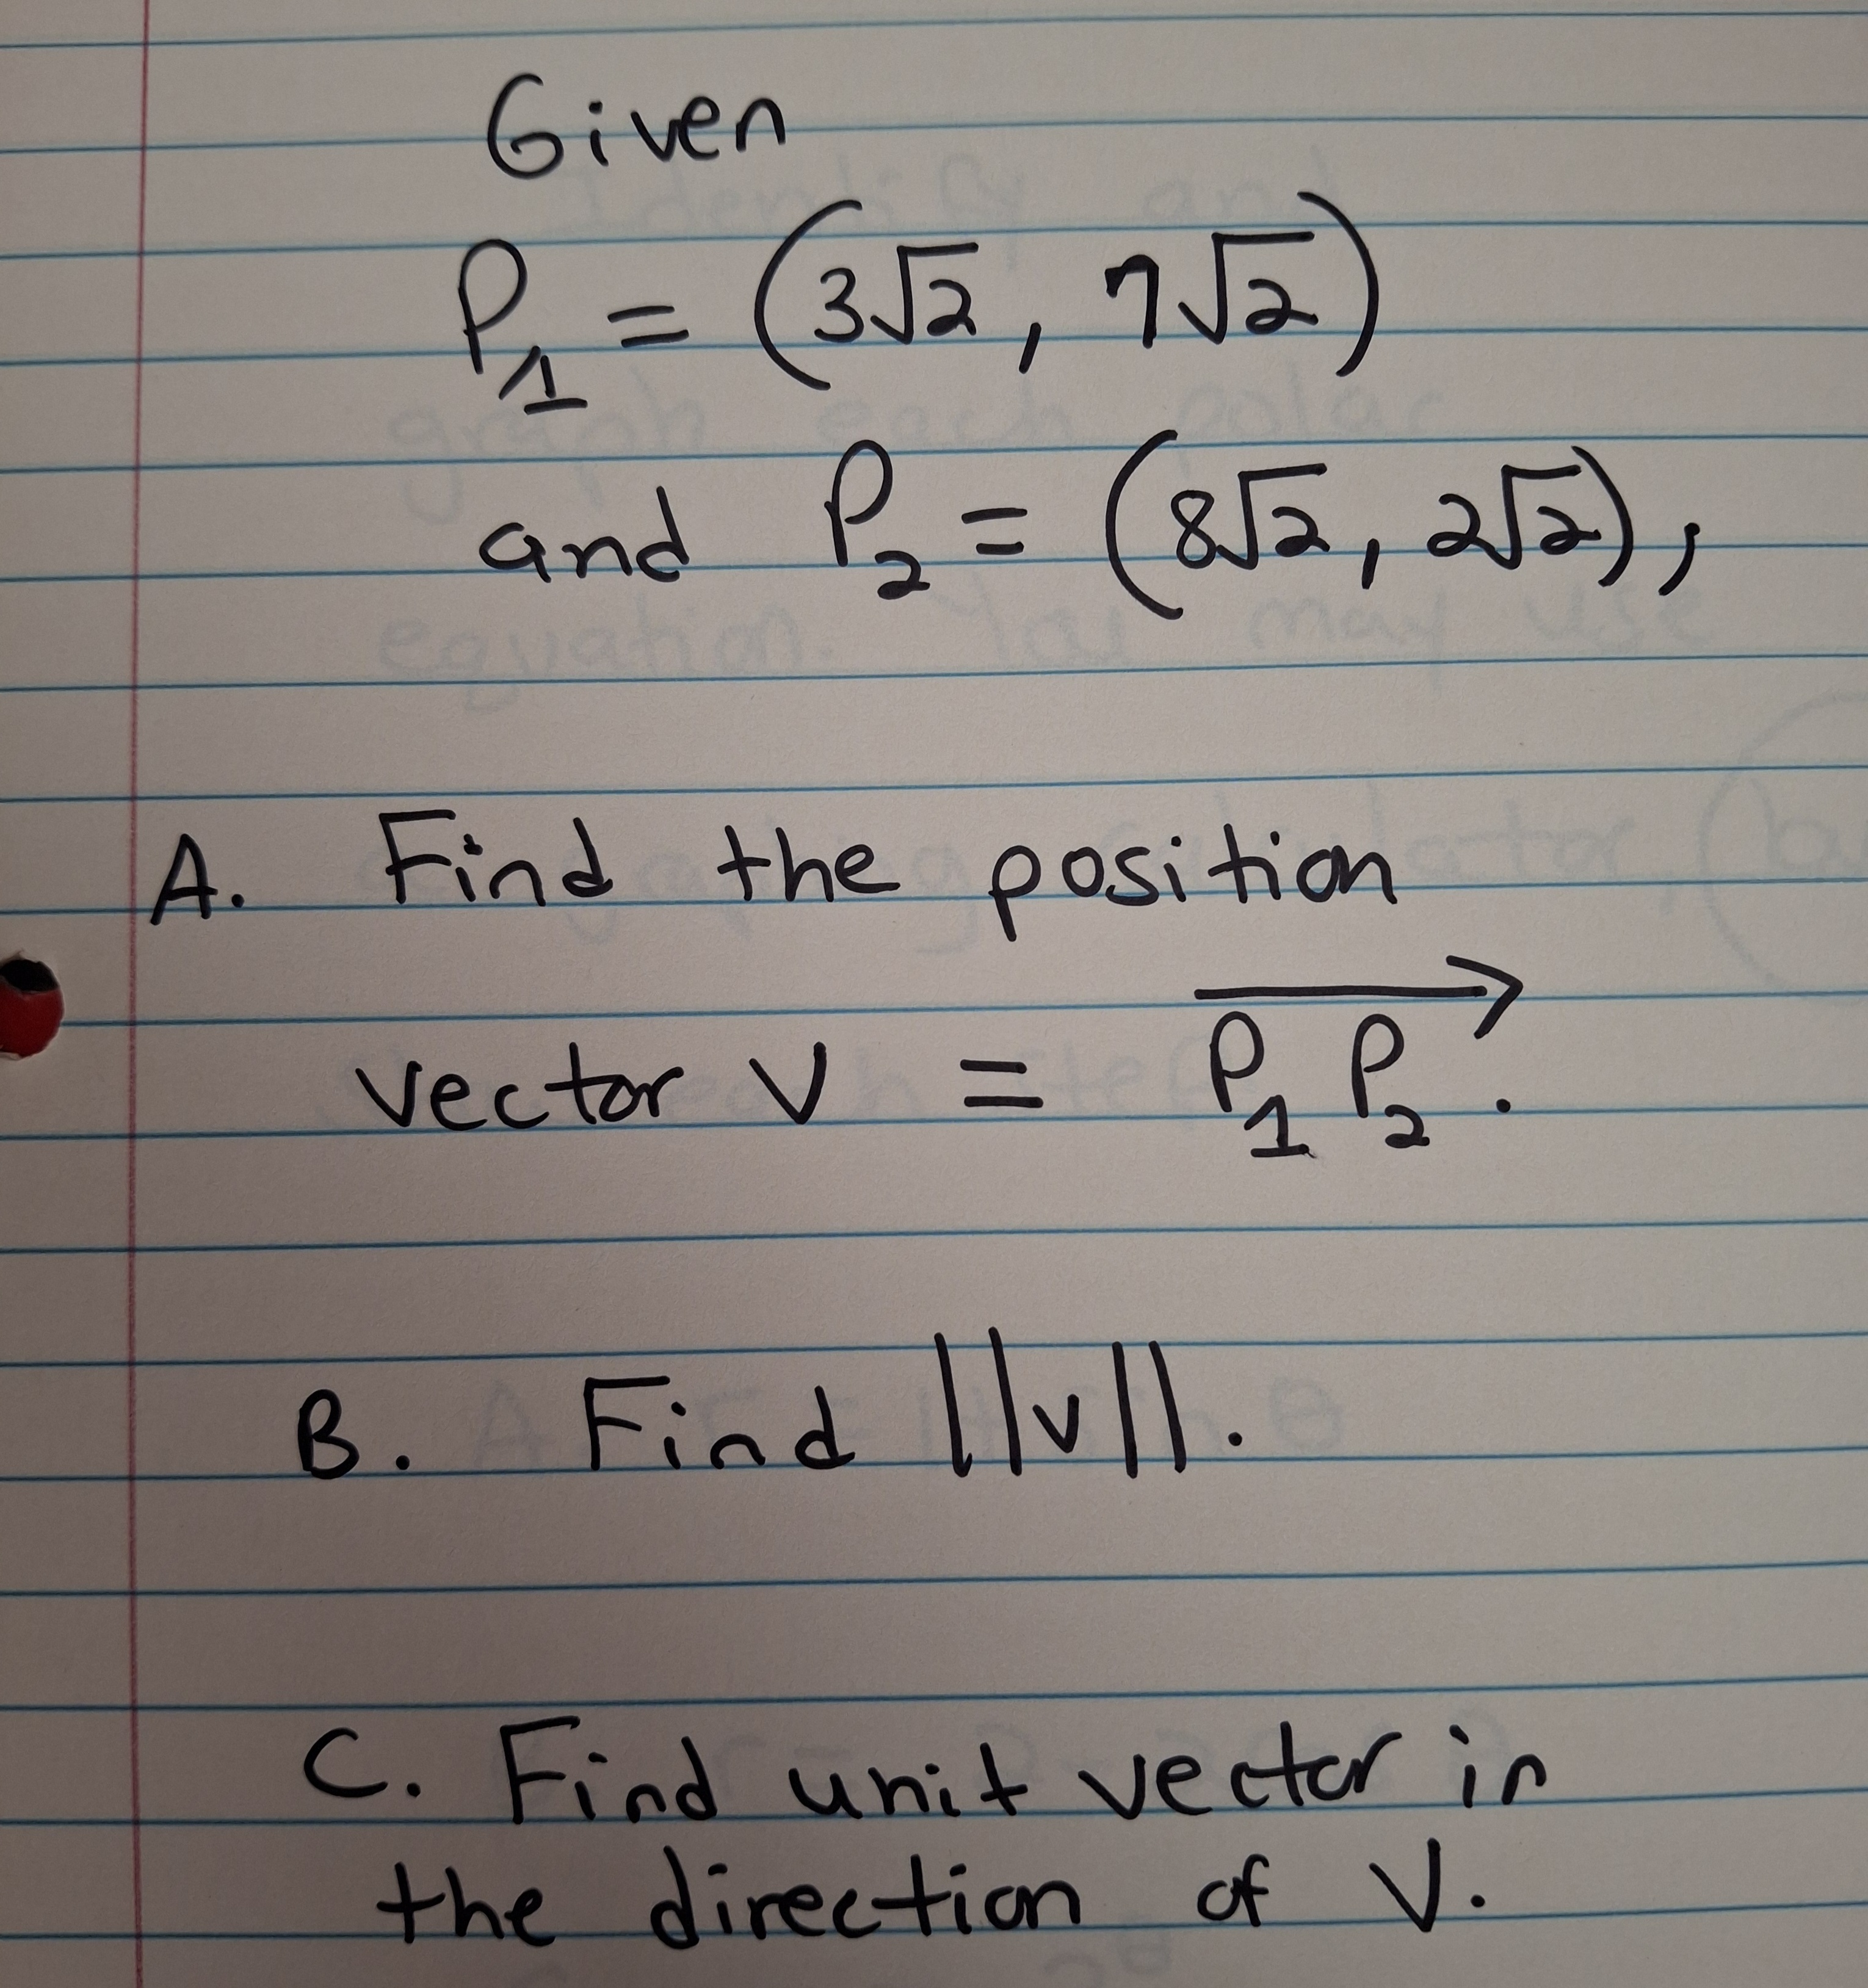 Given
P₁ = (3√2, 7√2)
and P₂ = (8√2, 2√2),
A. Find the position
vector v = →P₁P₂.
B. Find ||v||.
C. Find unit vector in
the direction of v.